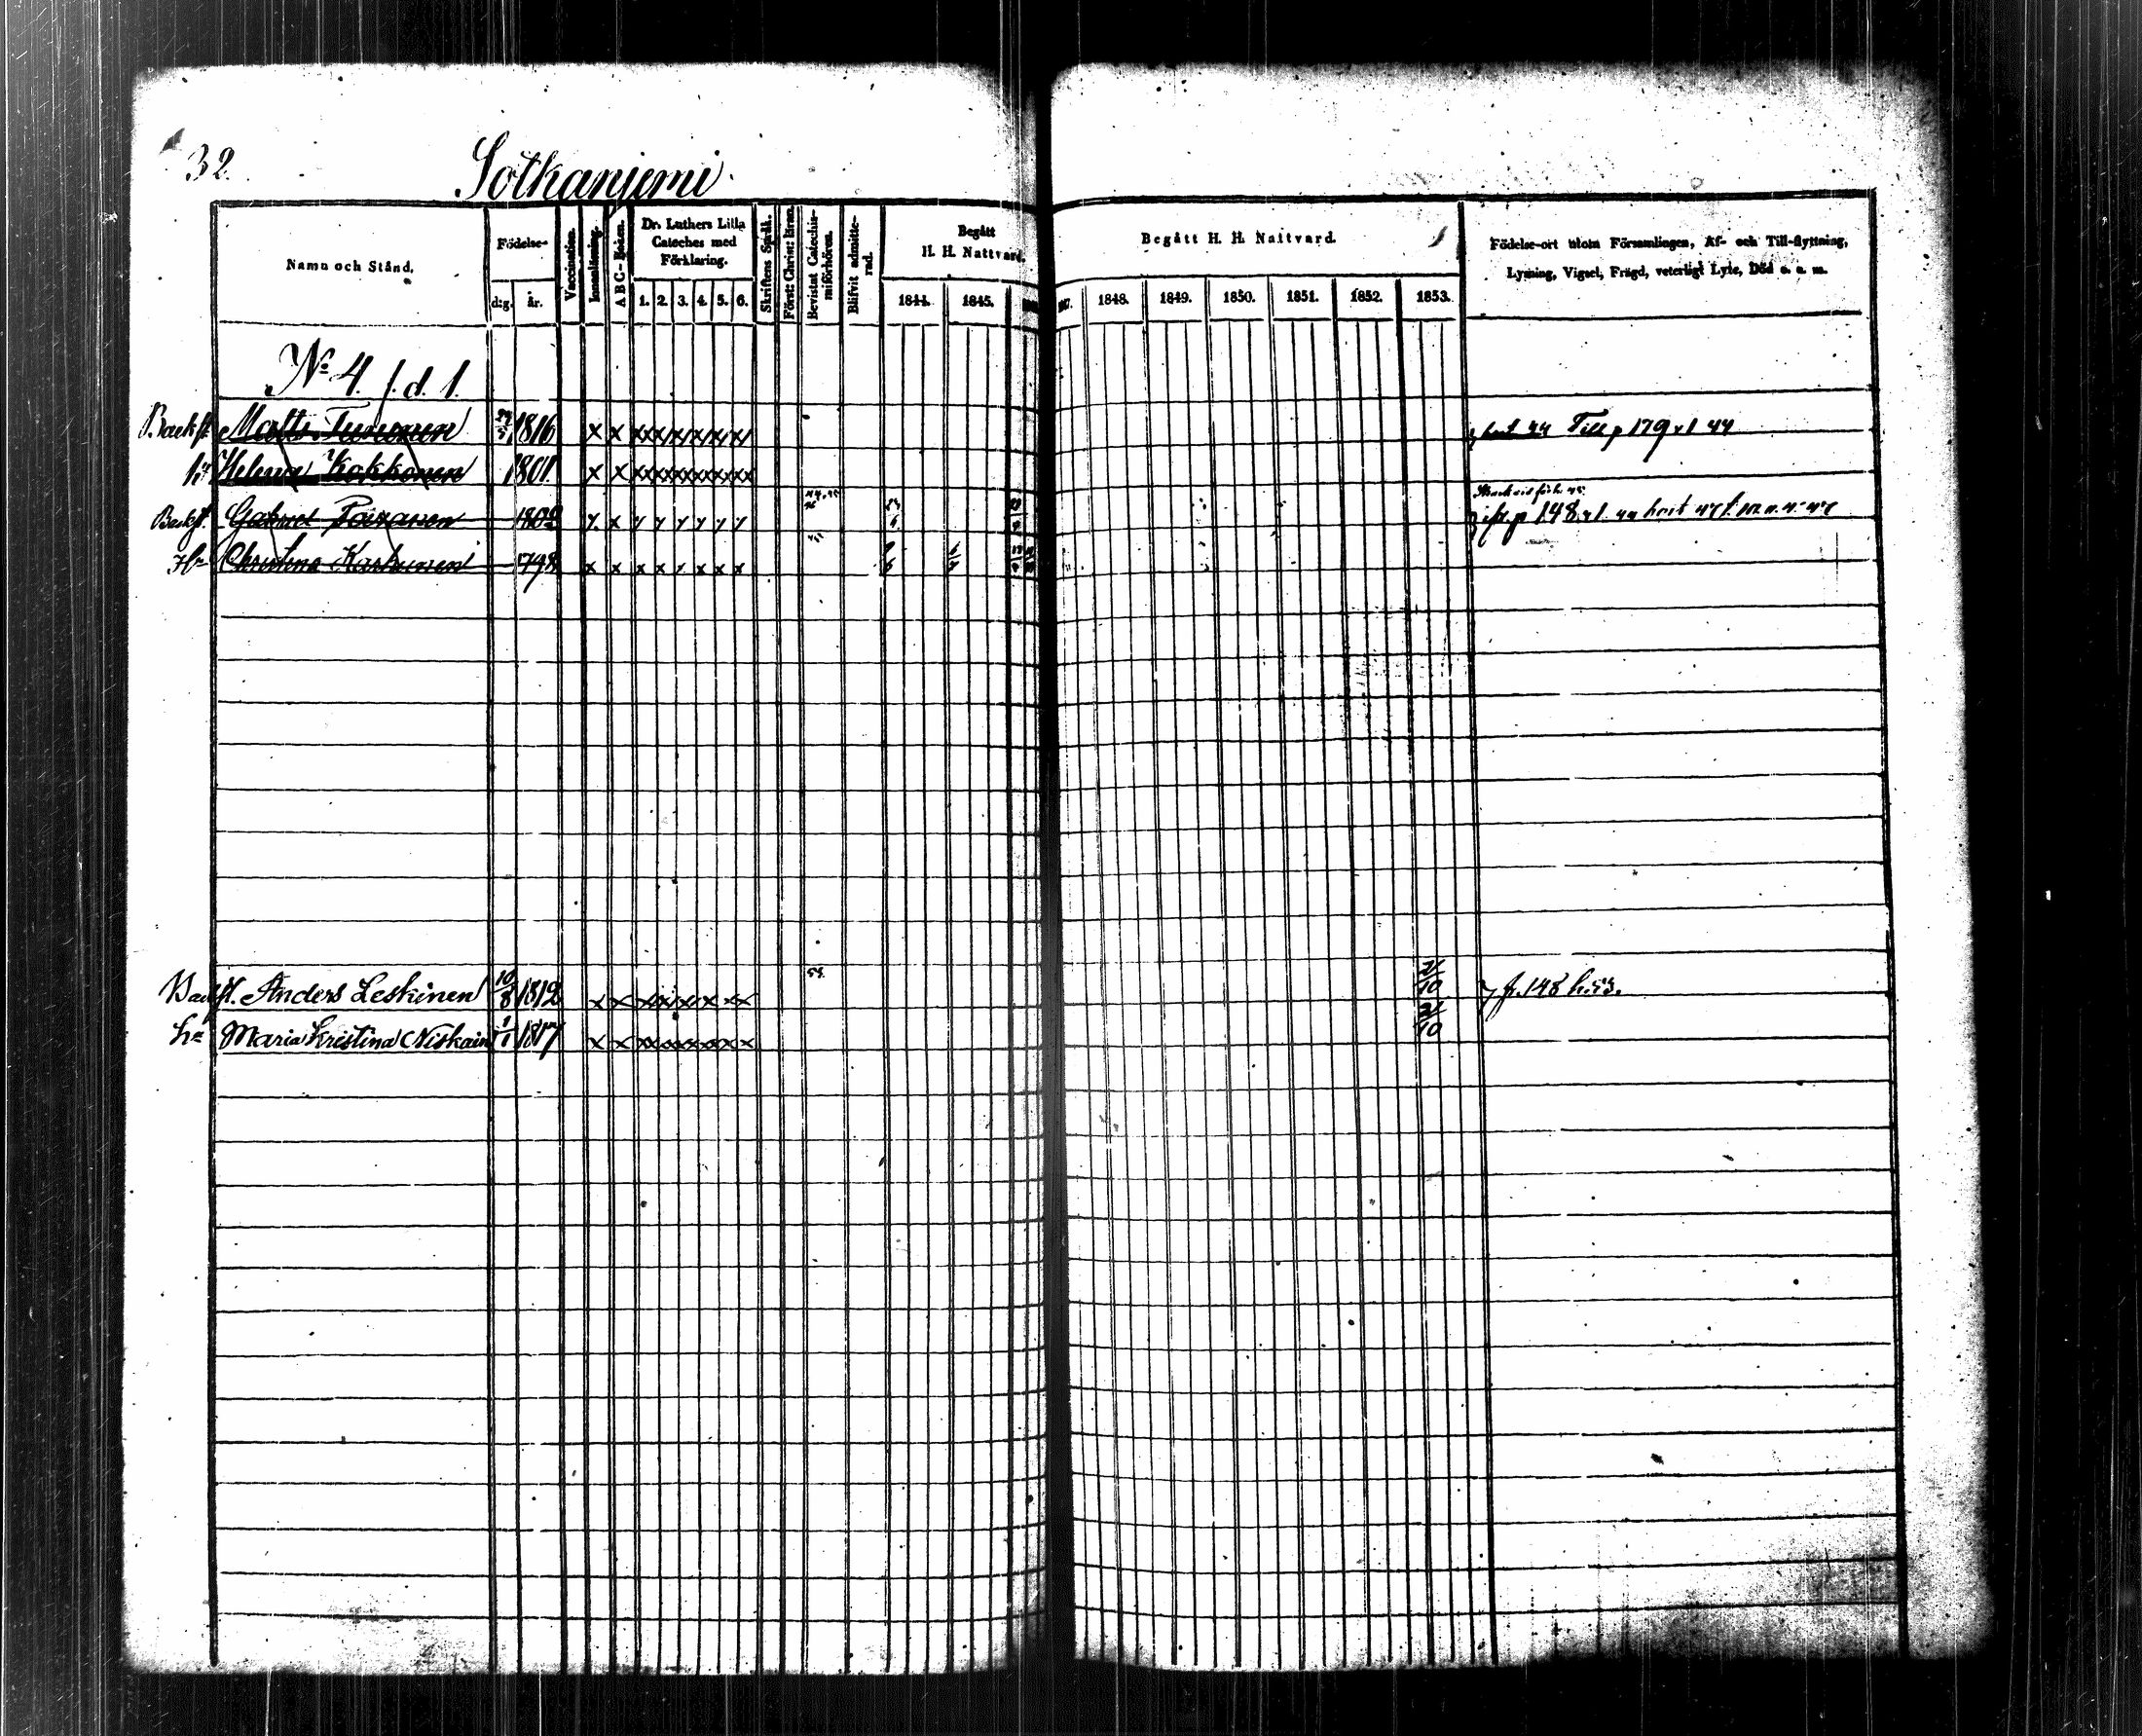 32.
Sotkanjemi
Namn och Stånd.
Födelse-
d:g. år.
Vaccination.
Innanläsning.
A B C-Boken.
Dr. Luthers Lilla Cateches med Förklaring.
1. 2. 3. 4. 5. 6.
Skriftens Språk.
Bevistat Catechismiförhören.
Blifvit admitterad.
Begått H. H. Nattvard.
1844. 1845.
Begått H. H. Nattvard.
1848. 1849. 1850. 1851. 1852. 1853.
Födelse-ort utom Församlingen, Af- och Till-flyttning,
Lysning, Vigsel, Frägd, veterligt Lyte, Död o. s. m.
No 4 f.d. 1.
Backst. Matts Turunen 1816 x x x x x x x x Till p 179 44
Helena Kokkonen 1801 x x x x x x x x
Backst. Gabriel 1802 x x x x x x x x p 148
Hu Christina Karhunen 1798 x x x x x x x x
Backst. Anders Leskinen 10/8 1812 x x x x x x x x 53. 2/10 fr. 148 h. 53.
hu Maria Kristina Niskain 1/1 1817 x x x x x x x x 2/10